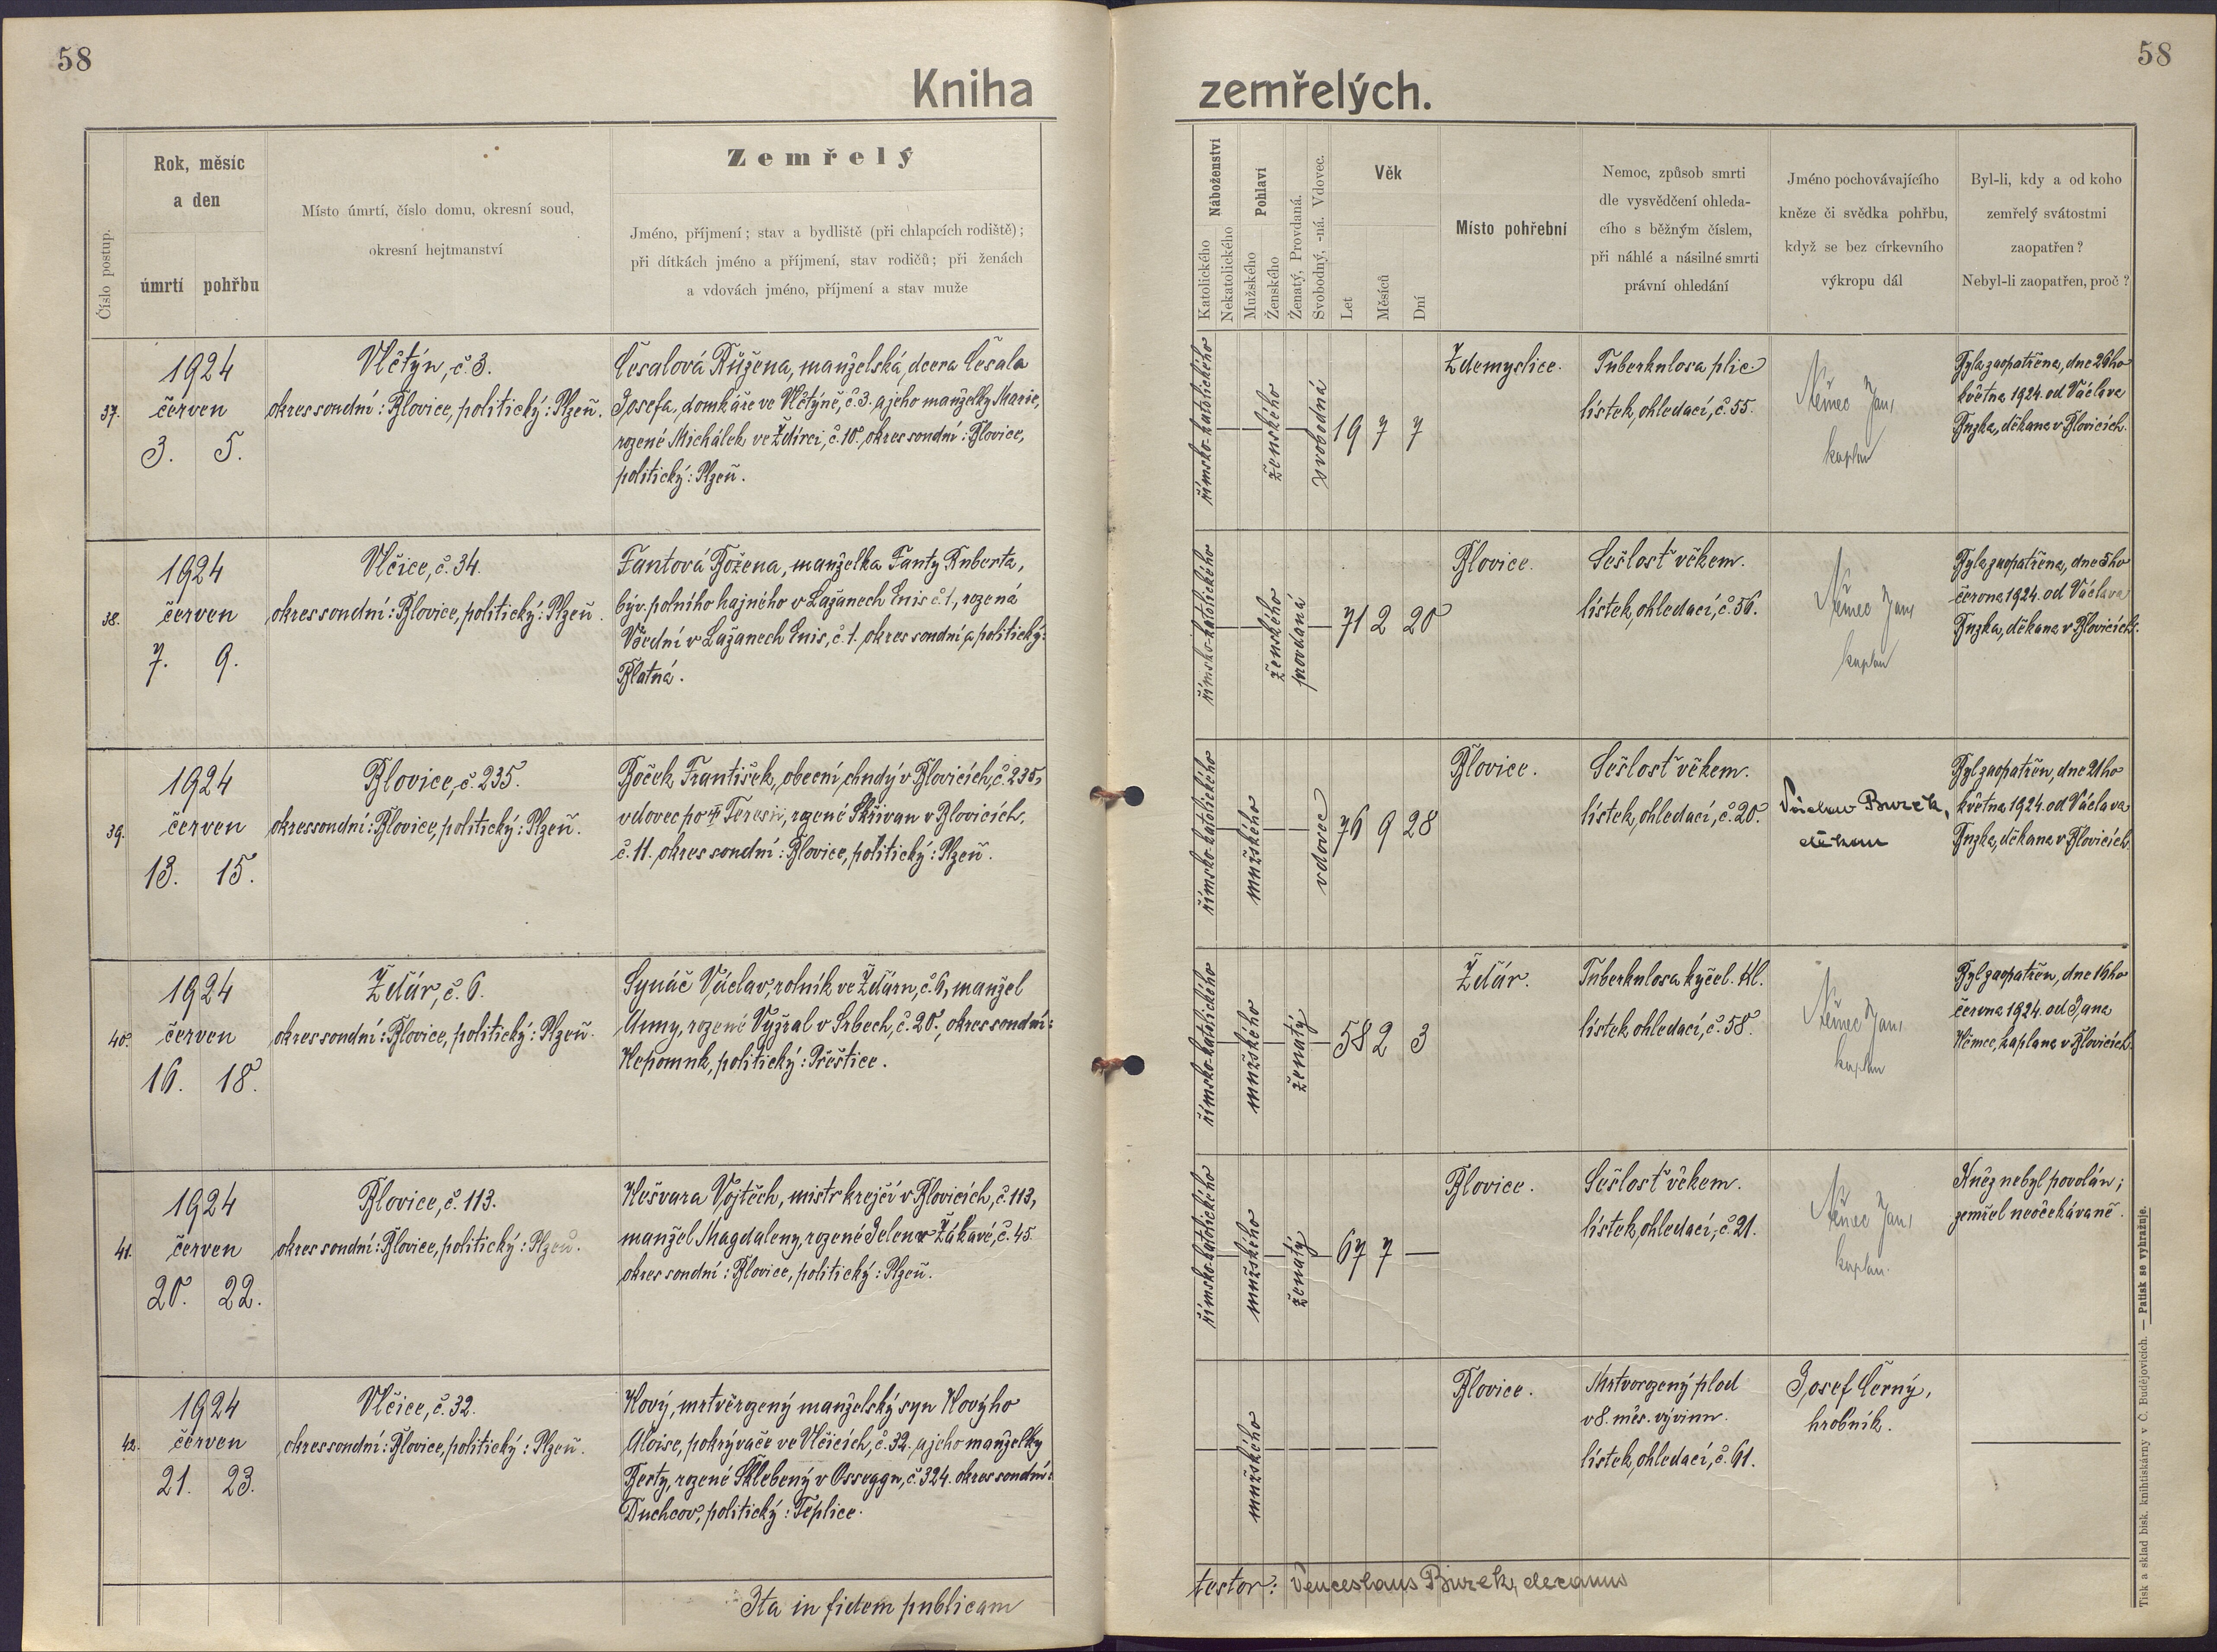 58
58
Kniha
zemřelých.
Číslo postup.
Rok, měsíc
a den
úmrtí
pohřbu
Místo úmrtí, číslo domu, okresní soud,
okresní hejtmanství
Zemřelý
Jméno, příjmení; stav a bydliště (při chlapcích rodiště);
při dítkách jméno a příjmení, stav rodičů; při ženách
a vdovách jméno, příjmení a stav muže
Náboženství
Katolického
Nekatolického
Pohlaví
Mužského
Ženského
Ženatý, Provdaná.
Svobodný, -ná. Vdovec.
Věk
Let
Měsíců
Dní
Místo pohřební
Nemoc, způsob smrti
dle vysvědčení ohleda-
cího s běžným číslem,
při náhlé a násilné smrti
právní ohledání
Jméno pochovávajícího
kněze či svědka pohřbu,
když se bez církevního
výkropu dál
Byl-li, kdy a od koho
zemřelý svátostmi
zaopatřen?
Nebyl-li zaopatřen, proč?
37.
1924
červen
3. 5.
Vlčtýn, č. 3.
okres soudní: Blovice, politický: Plzeň.
Česalová Růžena, manželská dcera Česala
Josefa, domkáře ve Vlčtýně, č. 3. a jeho manželky Marie,
rozené Michálek ve Ždírci, č. 10. okres soudní: Blovice,
politický: Plzeň.
římsko-katolického
ženského
svobodná
19 7 7
Zdemyslice.
Tuberkulosa plic.
lístek ohledací, č. 55.
Němec Jan,
kaplan
Byla zaopatřena, dne 26ho
května 1924. od Václava
Buzka, děkana v Blovicích.
38.
1924
červen
7. 9.
Vlčice, č. 34.
okres soudní: Blovice, politický: Plzeň.
Fantová Božena, manželka Fanty Huberta,
býv. polního hajného v Lažanech Enis č. 1, rozená
Všední v Lažanech Enis, č. 1. okres soudní a politický:
Blatná.
římsko-katolického
ženského
provdaná
71 2 20
Blovice.
Sešlosť věkem.
lístek ohledací, č. 56.
Němec Jan,
kaplan
Byla zaopatřena, dne 5ho
června 1924. od Václava
Buzka, děkana v Blovicích.
39.
1924
červen
13. 15.
Blovice, č. 235.
okres soudní: Blovice, politický: Plzeň.
Boček František, obecní chudý v Blovicích, č. 235,
vdovec po II Teresii, rozené Skřivan v Blovicích,
č. 11. okres soudní: Blovice, politický: Plzeň.
římsko-katolického
mužského
vdovec
76 9 28
Blovice.
Sešlosť věkem.
lístek ohledací, č. 20.
Václav Buzek,
děkan
Byl zaopatřen, dne 21ho
května 1924. od Václava
Buzka, děkana v Blovicích.
40.
1924
červen
16. 18.
Žďár, č. 6.
okres soudní: Blovice, politický: Plzeň.
Synáč Václav, rolník ve Žďáru, č. 6, manžel
Anny, rozené Vyžral v Srbech, č. 20., okres soudní:
Nepomuk, politický: Přeštice.
římsko-katolického
mužského
ženatý
58 2 3
Žďár.
Tuberkulosa kyčel. kl.
lístek ohledací, č. 58.
Němec Jan,
kaplan
Byl zaopatřen, dne 16ho
června 1924. od Jana
Němec, kaplana v Blovicích.
41.
1924
červen
20. 22.
Blovice, č. 113.
okres soudní: Blovice, politický: Plzeň.
Nešvara Vojtěch, mistr krejčí v Blovicích, č. 113,
manžel Magdaleny, rozené Jelen v Žákavé, č. 45.
okres soudní: Blovice, politický: Plzeň.
římsko-katolického
mužského
ženatý
67 7 —
Blovice.
Sešlosť věkem.
lístek ohledací, č. 21.
Němec Jan,
kaplan.
Kněz nebyl povolán;
zemřel neočekávaně.
42.
1924
červen
21. 23.
Vlčice, č. 32.
okres soudní: Blovice, politický: Plzeň.
Nový, mrtvěrozený manželský syn Nového
Aloise, pokrývače ve Vlčicích, č. 32. a jeho manželky
Berty, rozené Sklebený v Osseggu, č. 324. okres soudní:
Duchcov, politický: Teplice.
mužského
Blovice.
Mrtvorozený plod
v 8. měs. vývinu.
lístek ohledací, č. 61.
Josef Černý,
hrobník.
Ita in fidem publicam
testor: Venceslaus Buzek, decanus
Tisk a sklad bisk. knihtiskárny v Č. Budějovicích. — Patisk se vyhražuje.